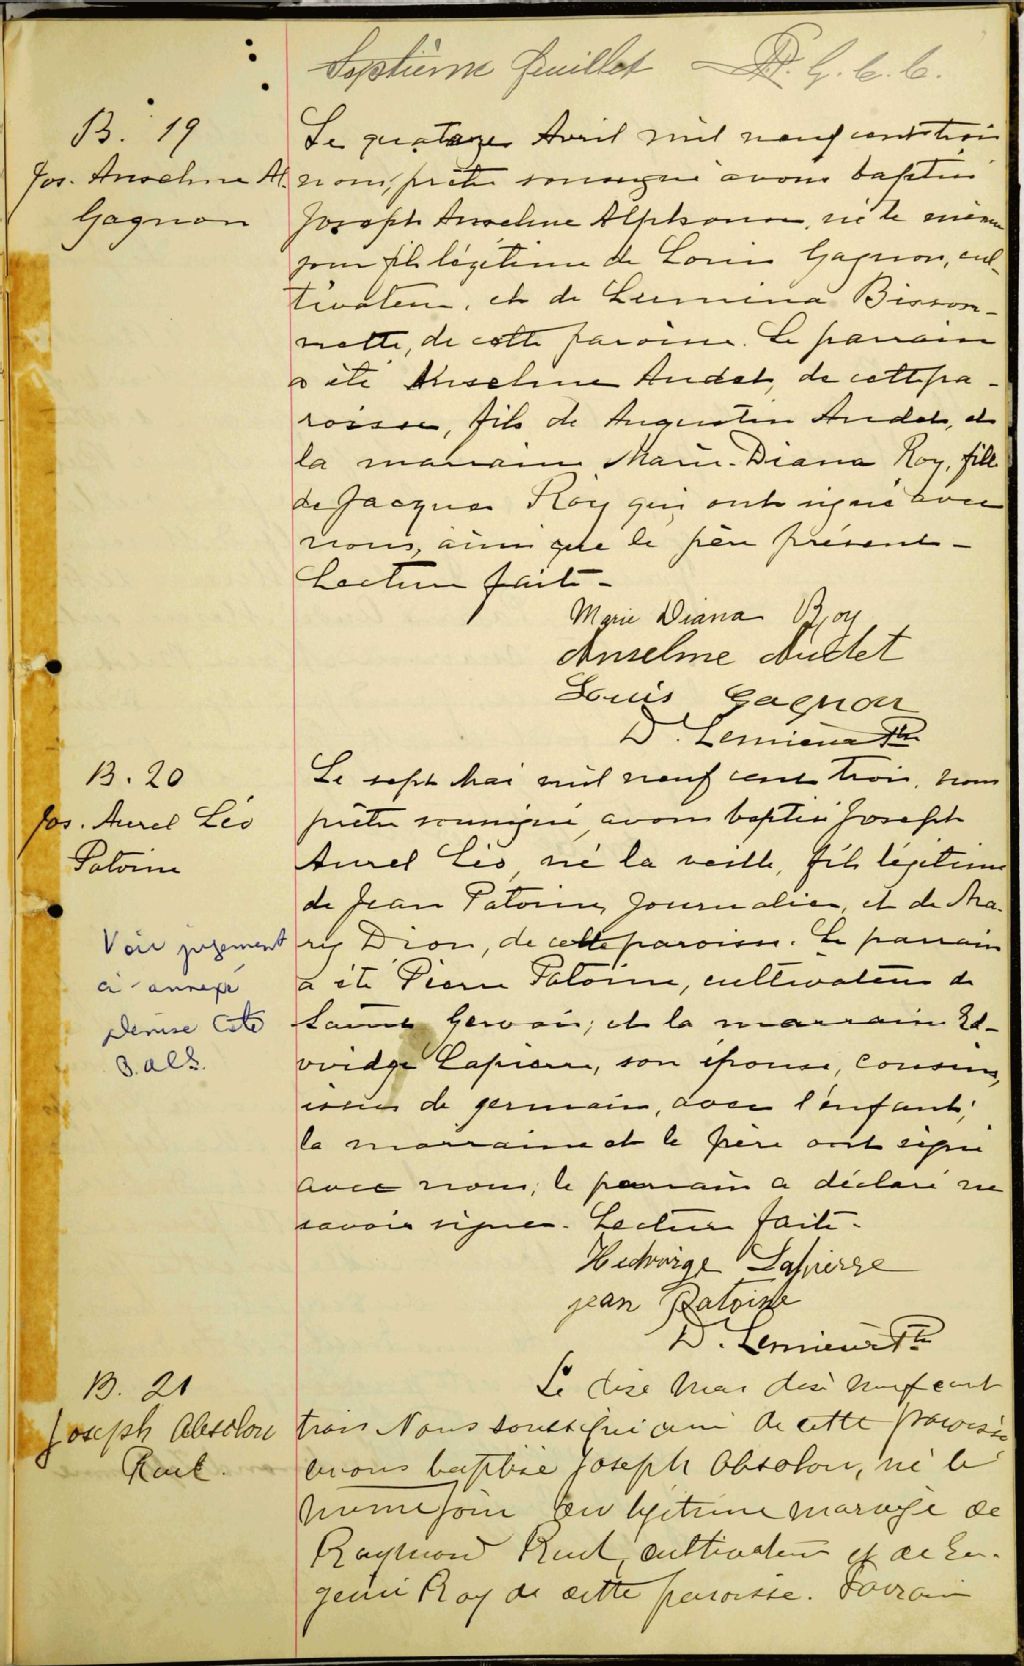 Septième feuillet
B. 19
Jos. Anselme Al.
Gagnon
Le quatorze Avril mil neuf cent trois
nous, prêtre soussigné avons baptisé
Joseph Anselme Alphonse, né le même
jour fils légitime de Louis Gagnon, cul-
tivateur, et de Lumina Bisson-
nette, de cette paroisse. Le parrain
a été Anselme Audet, de cette pa-
roisse, fils de Augustin Audet, et
la marraine Marie-Diana Roy, fille
de Jacques Roy qui ont signé avec
nous, ainsi que le père présent-
Lecture faite-
Marie Diana Roy
Anselme Audet
Louis Gagnon
D. Lemieux Ptre
B. 20
Jos. Aurel Léo
Patoine
Voir jugement
ci-annexé
Denise Côté
Le sept Mai mil neuf cent trois, nous
prêtre soussigné, avons baptisé Joseph
Aurel Léo, né la veille, fils légitime
de Jean Patoine, Journalier, et de Ma-
ry Dion, de cette paroisse. Le parrain
a été Pierre Patoine, cultivateur de
Saint Gervais; et la marraine Ed-
widge Lapierre, son épouse, cousins,
issus de germain, avec l'enfant;
la marraine et le père ont signé
avec nous; le parrain a déclaré ne
savoir signer. Lecture faite-
Hedwidge Lapierre
jean Patoine
D. Lemieux Ptre
B. 21
Joseph Absolon
Le dix Mai dix neuf cent
trois Nous soussigné curé de cette paroisse
avons baptisé Joseph Absolon, né le
même jour du légitime mariage de
Raymond cultivateur et de Eu-
genie Roy de cette paroisse. Parrain